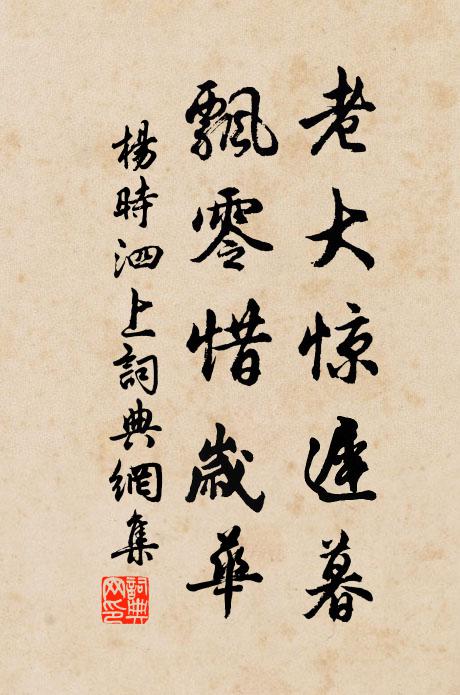 老大惊遲暮
飄零惜歲華
楊時泗上詞典網集
詞典網印